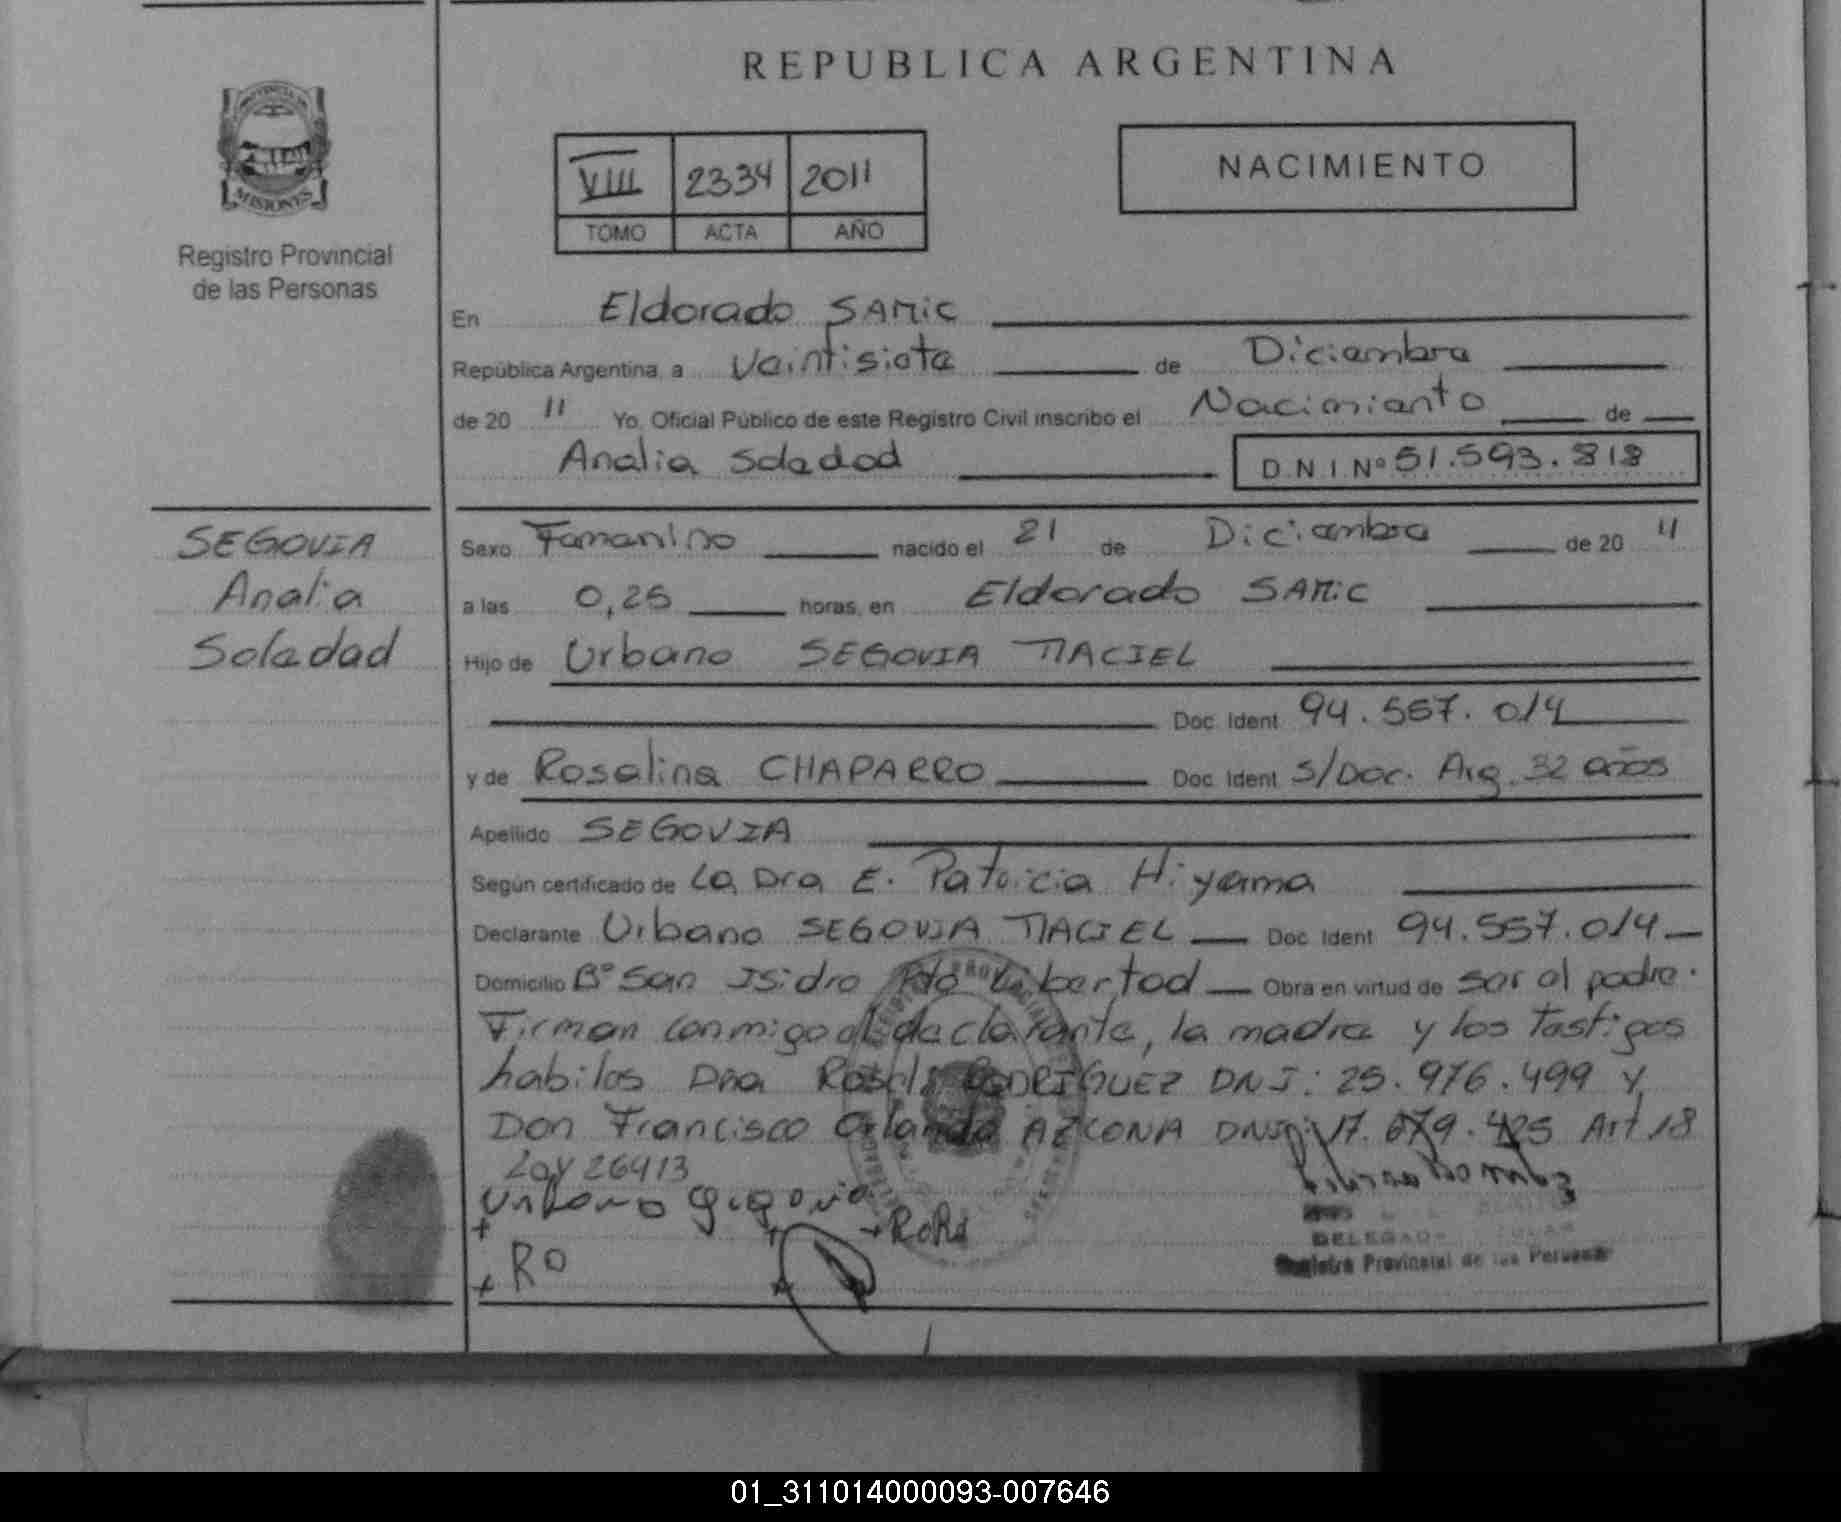 REPUBLICA ARGENTINA
PROVINCIA DE
MISIONES
Registro Provincial
de las Personas
VIII 2334 2011
TOMO ACTA AÑO
NACIMIENTO
En Eldorado SAMic
República Argentina, a Veintisiete de Diciembre
de 20 11 Yo, Oficial Público de este Registro Civil inscribo el Nacimiento de
Analia Soledad D.N.I Nº 51.593.818
SEGOVIA
Analia
Soledad
Sexo Femenino nacido el 21 de Diciembre de 20 11
a las 0,25 horas, en Eldorado SAMic
Hijo de Urbano SEGOVIA MACIEL
Doc. Ident 94.557.014
y de Rosalina CHAPARRO Doc. Ident S/Doc. Arg. 32 años
Apellido SEGOVIA
Según certificado de La Dra E. Patricia Hiyama
Declarante Urbano SEGOVIA MACIEL Doc. Ident 94.557.014
Domicilio Bº San Isidro Pto Libertad Obra en virtud de ser el padre.
Firman conmigo el declarante, la madre y los testigos
habiles Dña RODRIGUEZ DNI: 25.976.499 y
Don Francisco Orlando AZCONA DNI: 17. Art 18
Ley 26413
Urbano Segovia
RO
DELEGADO
Registro Provincial de las Personas
01_311014000093-007646